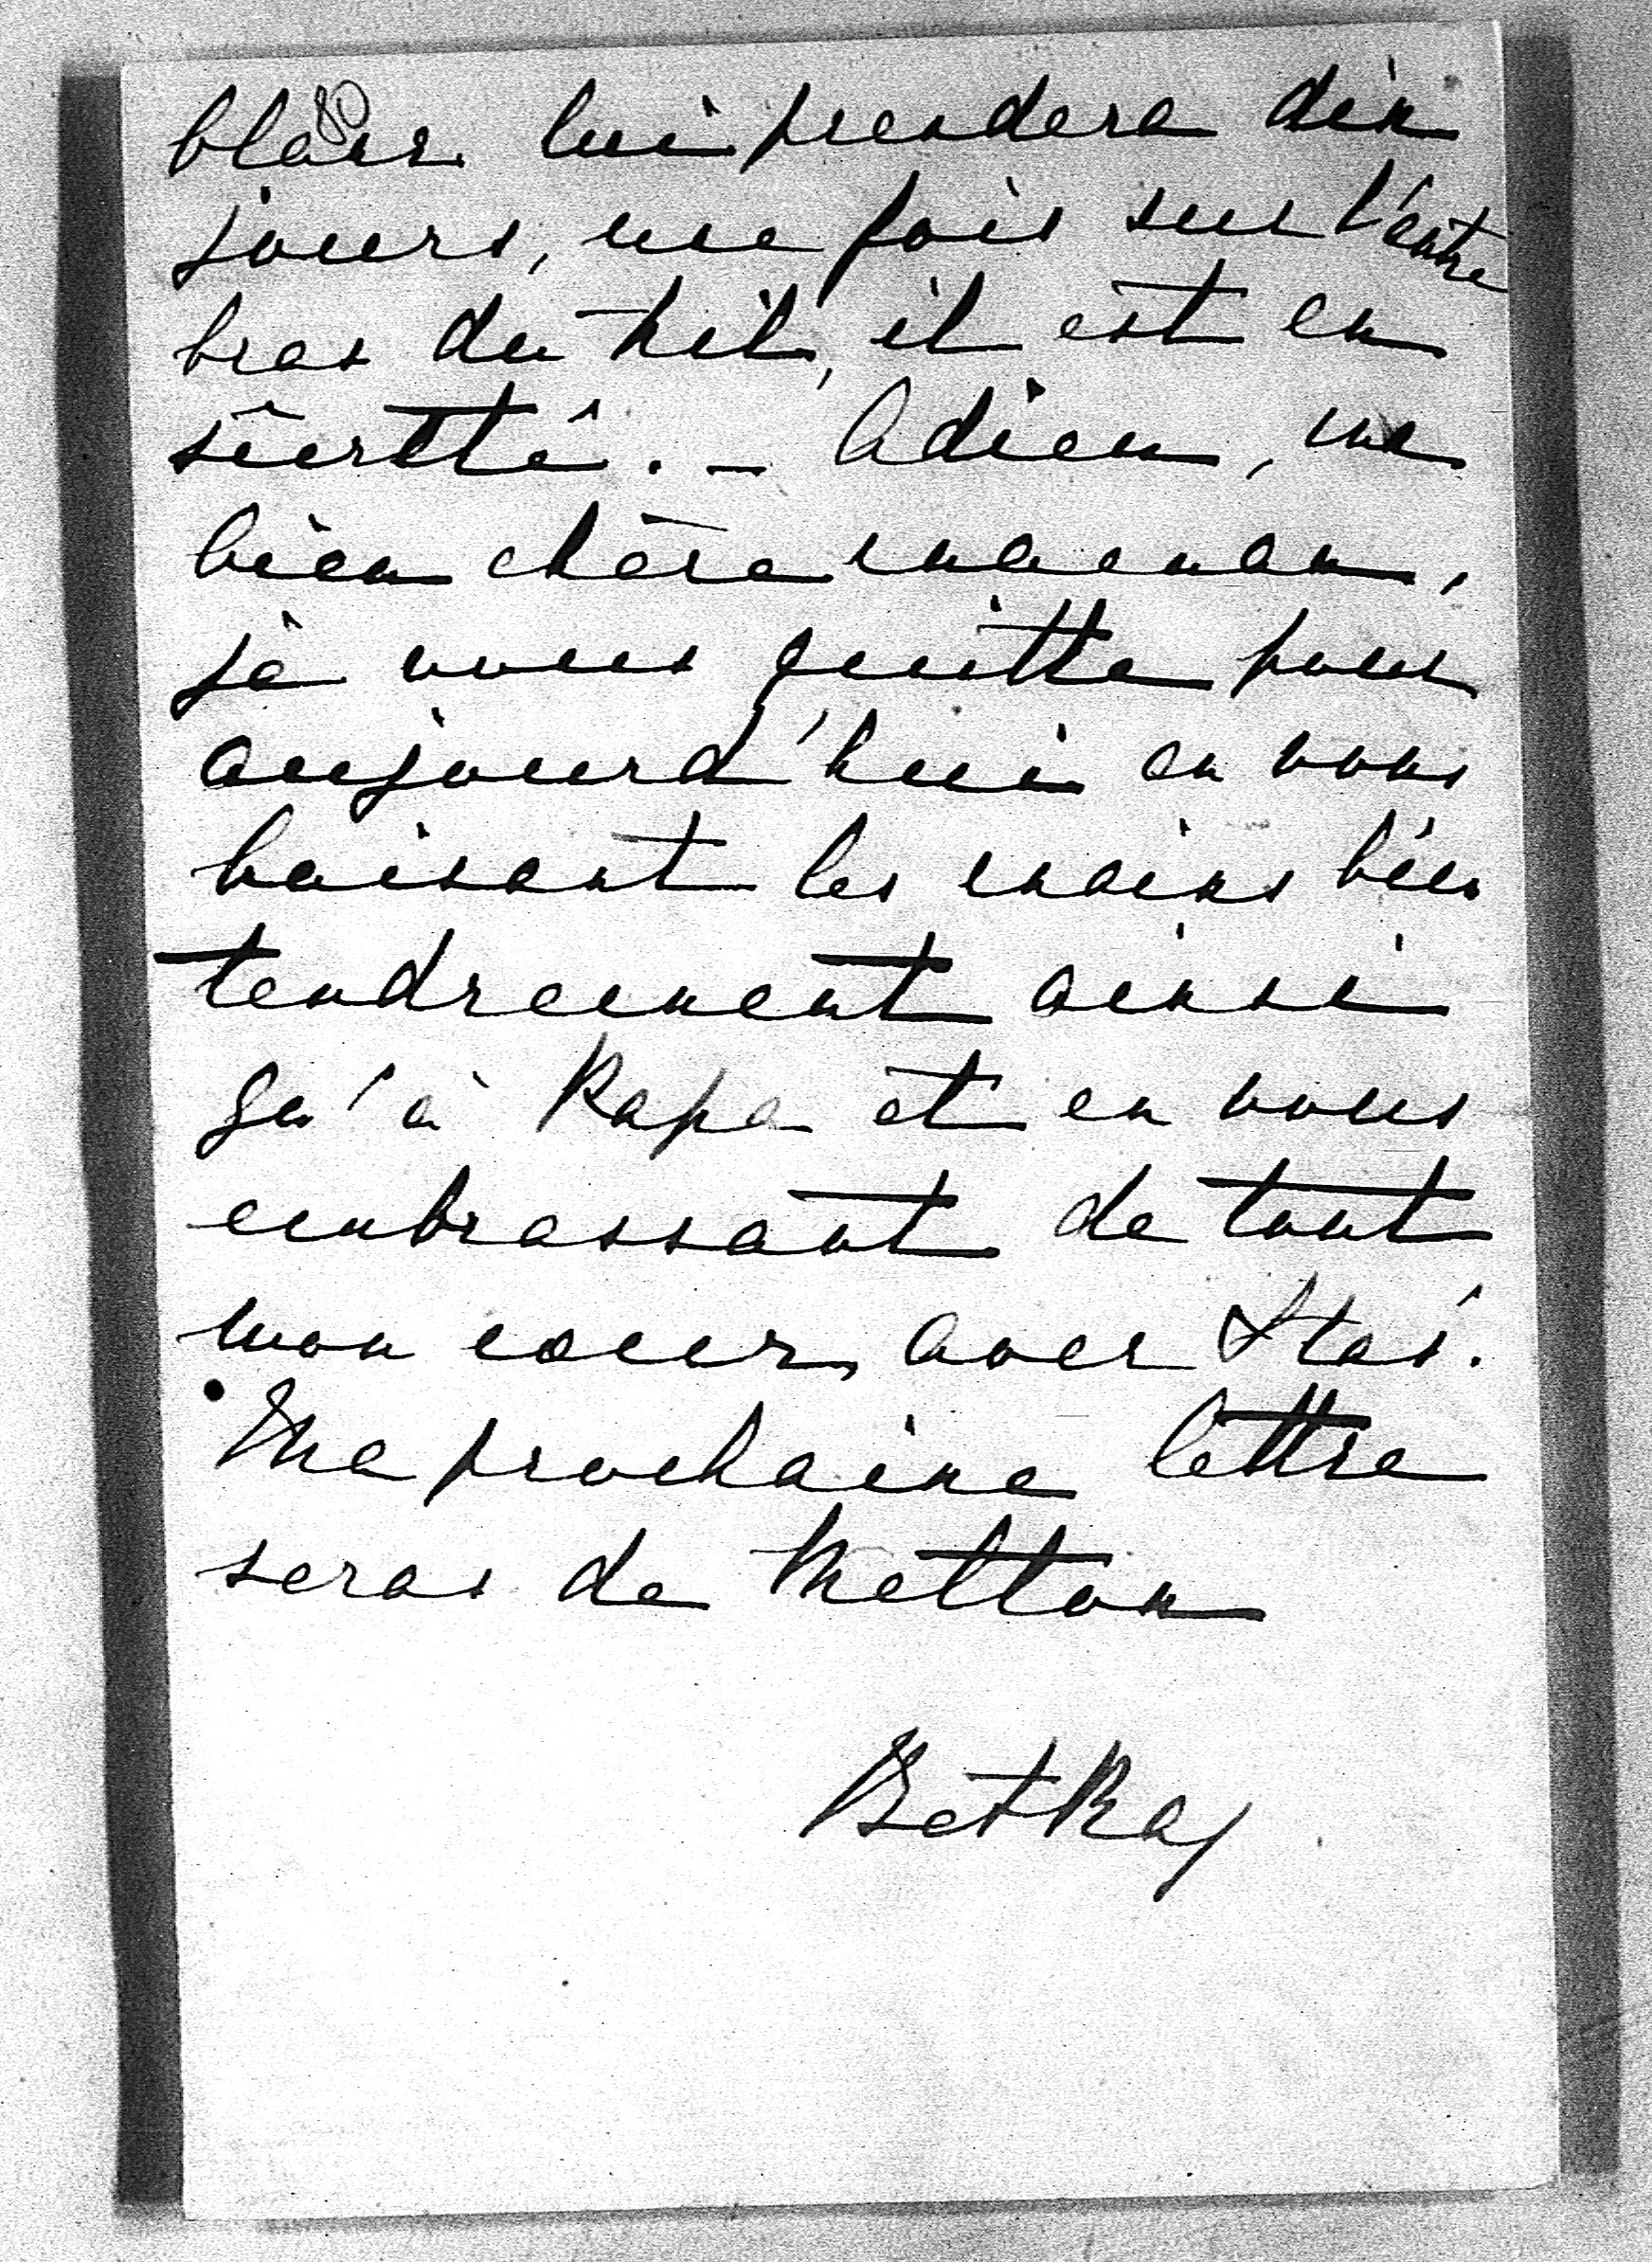 lui prendera dix
jours, une fois sur l'autre
bras du Nil, il est en
sûrtté. - Adieu, ma
bien chère maman,
je vous quitte pour
aujourd'hui en vous
baisant les mains bien
tendrement ainsi
qu'à Papa et en vous
embrassant de tout
mon coeur, avec Stas.
Ma prochaine lettre
seras de
Betka